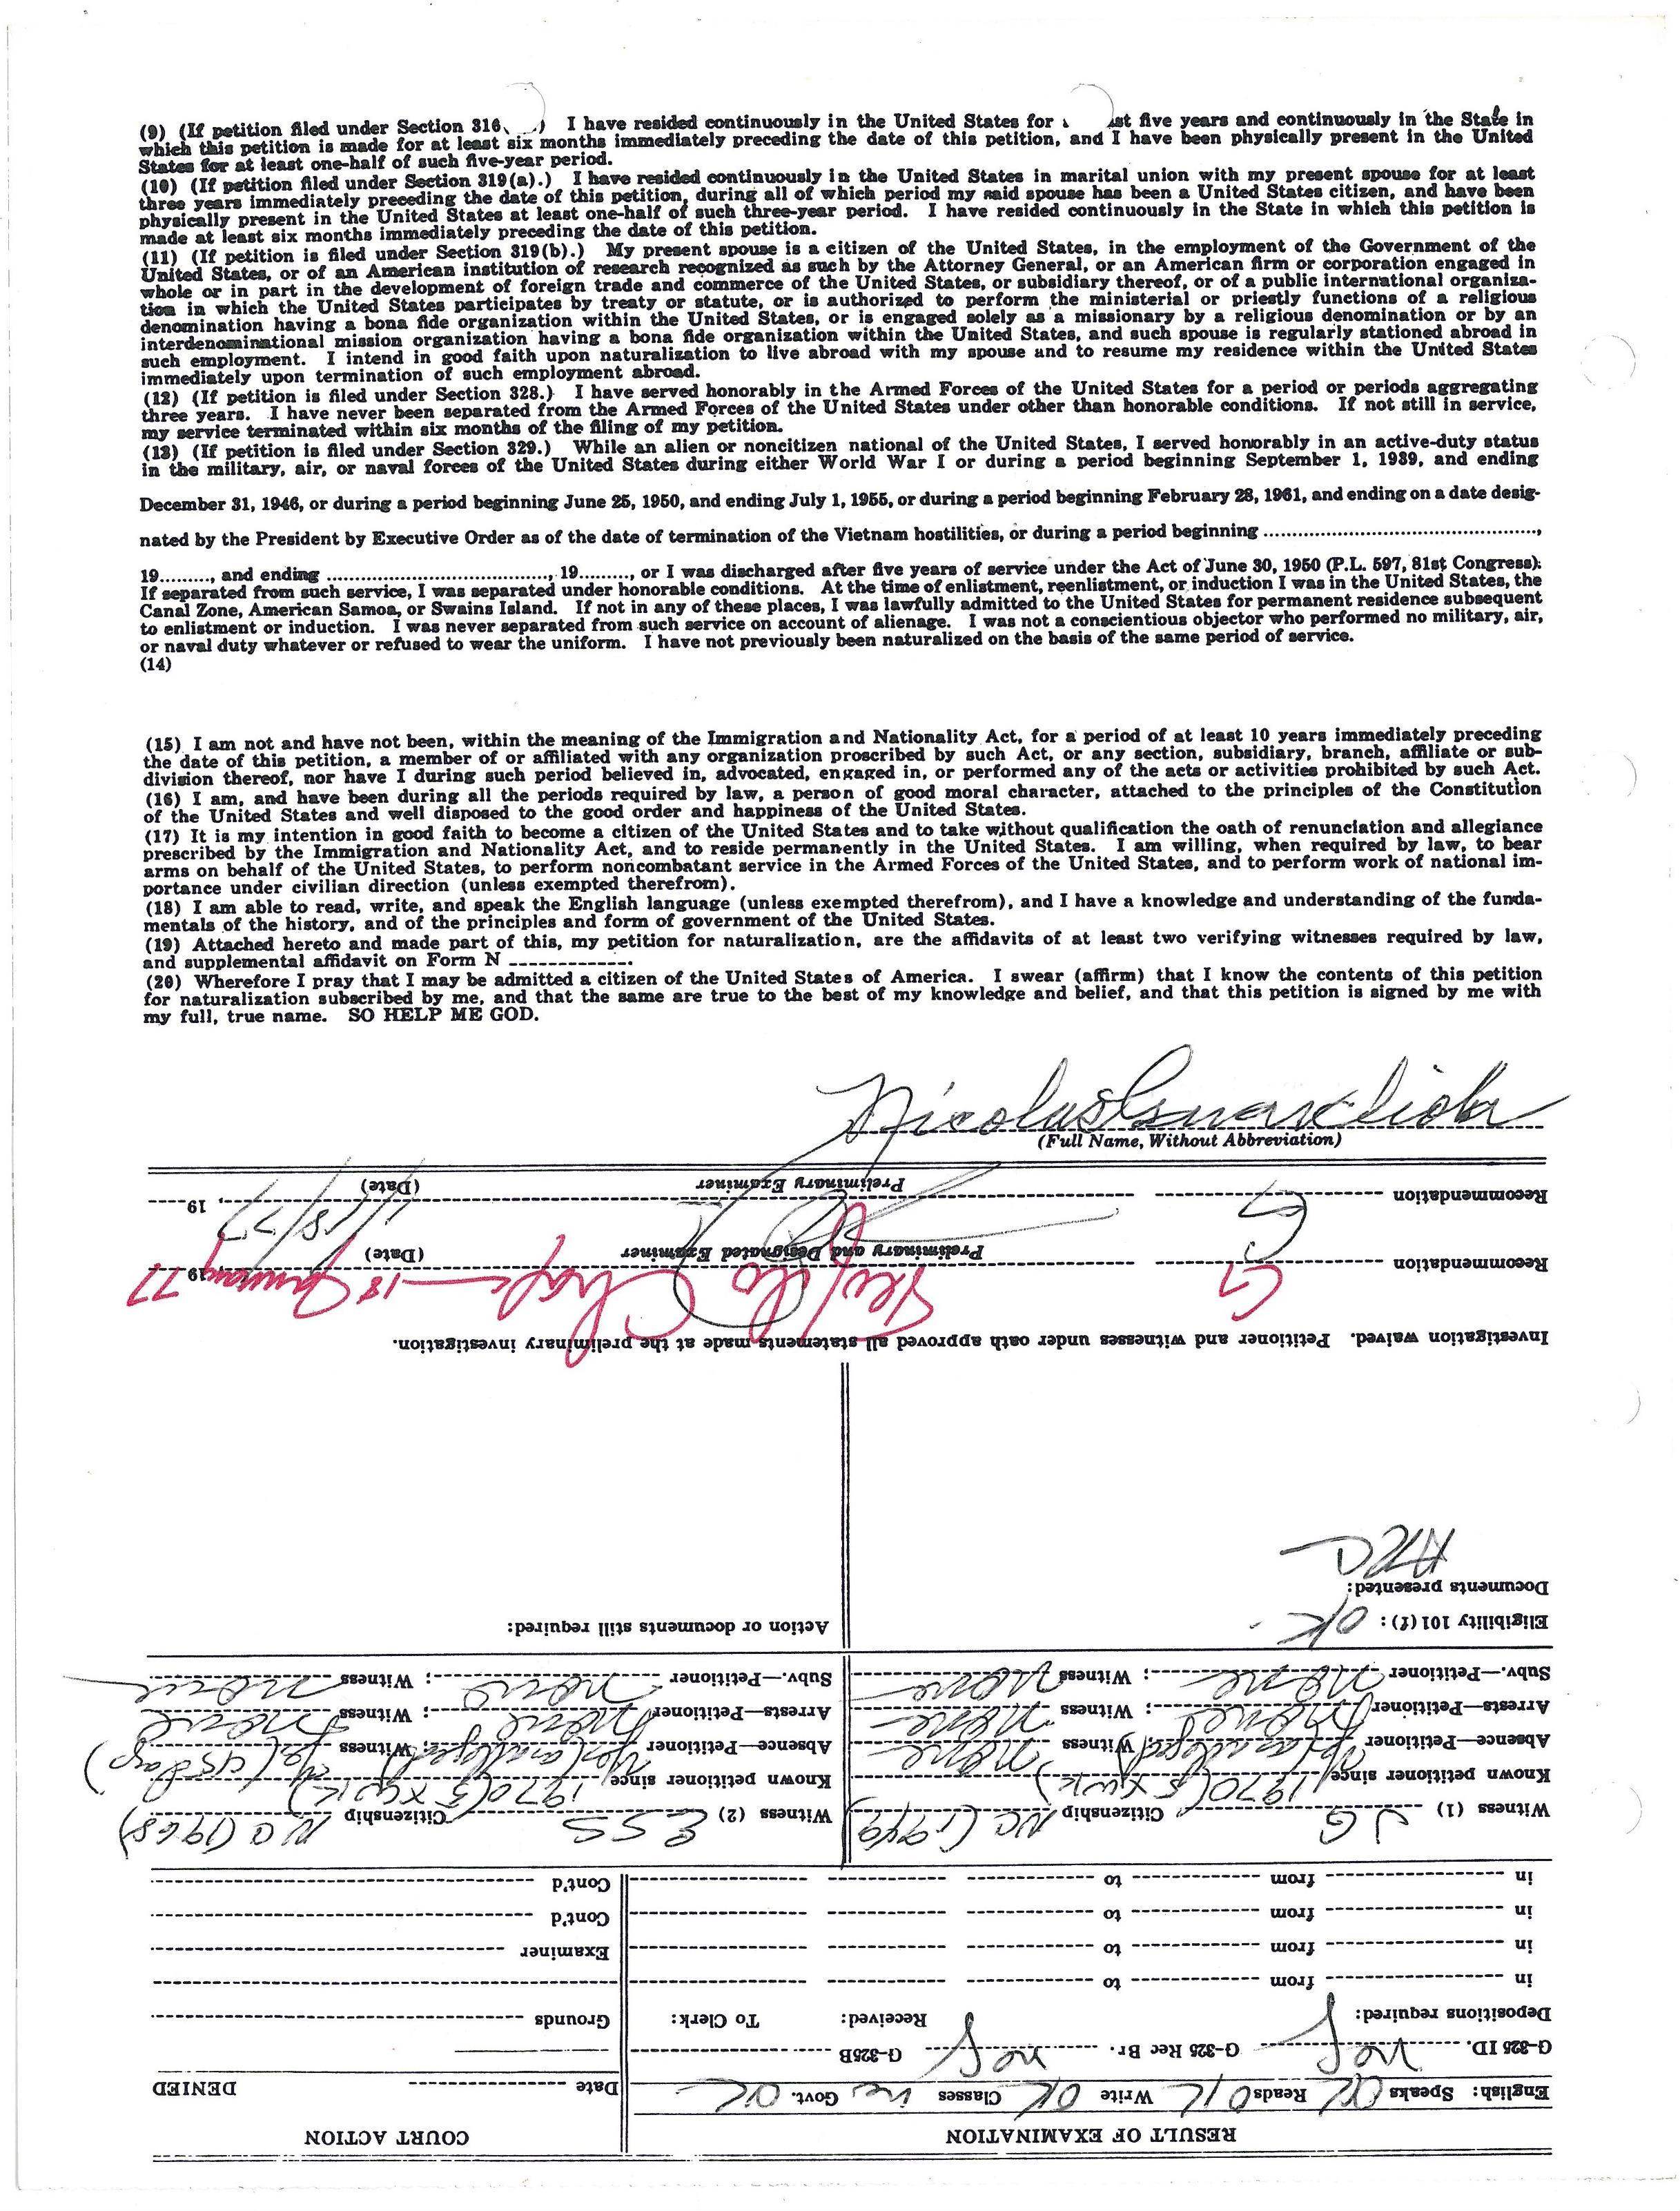 (9) (If petition filed under Section 316 ) I have resided continuously in the United States for st five years and continuously in the State in
which this petition is made for at least six months immediately preceding the date of this petition, and I have been physically present in the United
States for at least one-half of such five-year period.
(10) (If petition filed under Section 319(a).) I have resided continuously in the United States in marital union with my present spouse for at least
three years immediately preceding the date of this petition, during all of which period my said spouse has been a United States citizen, and have been
physically present in the United States at least one-half of such three-year period. I have resided continuously in the State in which this petition is
made at least six months immediately preceding the date of this petition.
(11) (If petition is filed under Section 319(b).) My present spouse is a citizen of the United States, in the employment of the Government of the
United States, or of an American institution of research recognized as such by the Attorney General, or an American firm or corporation engaged in
whole or in part in the development of foreign trade and commerce of the United States, or subsidiary thereof, or of a public international organiza-
tion in which the United States participates by treaty or statute, or is authorized to perform the ministerial or priestly functions of a religious
denomination having a bona fide organization within the United States, or is engaged solely as a missionary by a religious denomination or by an
interdenominational mission organization having a bona fide organization within the United States, and such spouse is regularly stationed abroad in
such employment. I intend in good faith upon naturalization to live abroad with my spouse and to resume my residence within the United States
immediately upon termination of such employment abroad.
(12) (If petition is filed under Section 328.) I have served honorably in the Armed Forces of the United States for a period or periods aggregating
three years. I have never been separated from the Armed Forces of the United States under other than honorable conditions. If not still in service,
my service terminated within six months of the filing of my petition.
(13) (If petition is filed under Section 329.) While an alien or noncitizen national of the United States, I served honorably in an active-duty status
in the military, air, or naval forces of the United States during either World War I or during a period beginning September 1, 1939, and ending
December 31, 1946, or during a period beginning June 25, 1950, and ending July 1, 1955, or during a period beginning February 28, 1961, and ending on a date desig-
nated by the President by Executive Order as of the date of termination of the Vietnam hostilities, or during a period beginning ........................................,
19........., and ending ........................................, 19........., or I was discharged after five years of service under the Act of June 30, 1950 (P.L. 597, 81st Congress).
If separated from such service, I was separated under honorable conditions. At the time of enlistment, reenlistment, or induction I was in the United States, the
Canal Zone, American Samoa, or Swains Island. If not in any of these places, I was lawfully admitted to the United States for permanent residence subsequent
to enlistment or induction. I was never separated from such service on account of alienage. I was not a conscientious objector who performed no military, air,
or naval duty whatever or refused to wear the uniform. I have not previously been naturalized on the basis of the same period of service.
(14)
(15) I am not and have not been, within the meaning of the Immigration and Nationality Act, for a period of at least 10 years immediately preceding
the date of this petition, a member of or affiliated with any organization proscribed by such Act, or any section, subsidiary, branch, affiliate or sub-
division thereof, nor have I during such period believed in, advocated, engaged in, or performed any of the acts or activities prohibited by such Act.
(16) I am, and have been during all the periods required by law, a person of good moral character, attached to the principles of the Constitution
of the United States and well disposed to the good order and happiness of the United States.
(17) It is my intention in good faith to become a citizen of the United States and to take without qualification the oath of renunciation and allegiance
prescribed by the Immigration and Nationality Act, and to reside permanently in the United States. I am willing, when required by law, to bear
arms on behalf of the United States, to perform noncombatant service in the Armed Forces of the United States, and to perform work of national im-
portance under civilian direction (unless exempted therefrom).
(18) I am able to read, write, and speak the English language (unless exempted therefrom), and I have a knowledge and understanding of the funda-
mentals of the history, and of the principles and form of government of the United States.
(19) Attached hereto and made part of this, my petition for naturalization, are the affidavits of at least two verifying witnesses required by law,
and supplemental affidavit on Form N -------------.
(20) Wherefore I pray that I may be admitted a citizen of the United States of America. I swear (affirm) that I know the contents of this petition
for naturalization subscribed by me, and that the same are true to the best of my knowledge and belief, and that this petition is signed by me with
my full, true name. SO HELP ME GOD.
Nicolas
(Full Name, Without Abbreviation)
RESULT OF EXAMINATION COURT ACTION
English: Speaks OK Reads OK Write OK Classes Govt. OK Date DENIED
G-325 ID. G-325 Rec Br. G-325B
Depositions required: Received: To Clerk: Grounds
in from to
in from to Examiner
in from to Cont'd
in from to Cont'd
Witness (1) JG Citizenship NC (1949) Witness (2) ESS Citizenship NC (1968)
Known petitioner since 1970 (5 x wk) Known petitioner since 1970 (5 x wk)
Absence—Petitioner Yes (as alleged) Witness None Absence—Petitioner Yes (as alleged); Witness Yes (45 days)
Arrests—Petitioner None; Witness None Arrests—Petitioner None; Witness None
Subv.—Petitioner None; Witness None Subv.—Petitioner None; Witness None
Eligibility 101 (f): OK Action or documents still required:
Documents presented:
ARC
Investigation waived. Petitioner and witnesses under oath approved all statements made at the preliminary investigation.
Recommendation G 18 January 1977
Preliminary and Designated Examiner (Date)
Recommendation G 1/18/77, 19
Preliminary Examiner (Date)